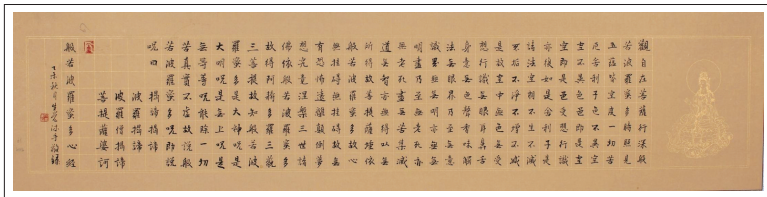 觀自在菩薩行深般
若波羅蜜多時照見
五蘊皆空度一切苦
厄舍利子色不異空
空不異色色即是空
空即是色受想行識
亦復如是舍利子是
諸法空相不生不滅
不垢不淨不增不減
是故空中無色無受
想行識無眼耳鼻舌
身意無色聲香味觸
法無眼界乃至無意
識界無無明亦無無
明盡乃至無老死亦
無老死盡無苦集滅
道無智亦無得以無
所得故菩提薩埵依
般若波羅蜜多故心
無罣礙無罣礙故無
有恐怖遠離顛倒夢
想究竟涅槃三世諸
佛依般若波羅蜜多
故得阿耨多羅三藐
三菩提故知般若波
羅蜜多是大神呪是
大明呪是無上呪是
無等等呪能除一切
苦真實不虛故說般
若波羅蜜多呪即說
呪曰 揭諦揭諦
波羅揭諦
波羅僧揭諦
菩提薩婆訶
般若波羅蜜多心經